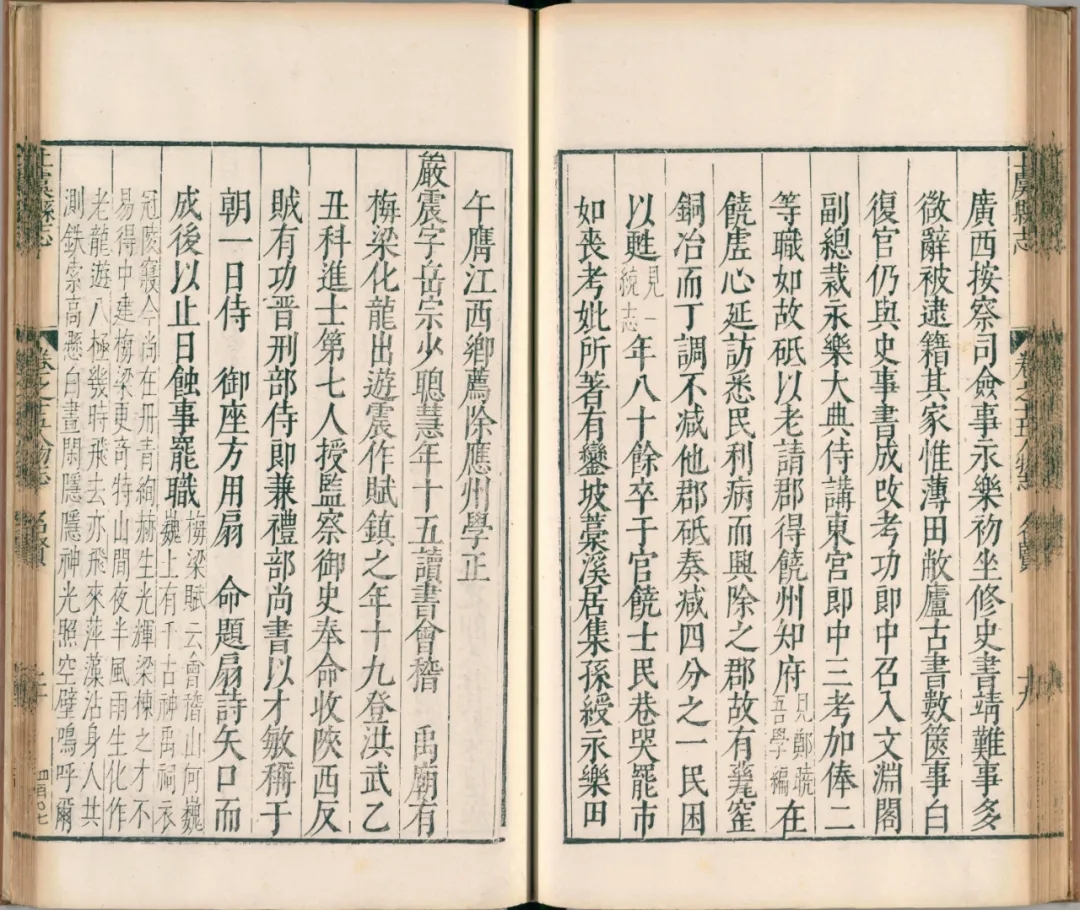 廣西按察司僉事永樂初坐修史書靖難事多
微辭被逮籍其家惟薄田敝廬古書數篋事白
復官仍與史事書成改考功郎中召入文淵閣
副總裁永樂大典侍講東宮郎中三考加俸二
等職如故砥以老請郡得饒州知府見鄭曉吾學編在
饒虛心延訪悉民利病而興除之郡故有甆窑
銅冶而丁調不减他郡砥奏减四分之一民困
以甦見一統志年八十餘卒于官饒士民巷哭罷市
如喪考妣所著有鑾坡藁溪居集孫綬永樂
午膺江西鄉薦除應州學正
嚴震字岳宗少聰慧年十五讀書會稽禹廟有
梅梁化龍出遊震作賦鎮之年十九登洪武乙
丑科進士第七人授監察御史奉命收陝西反
賊有功晉刑部侍郎兼禮部尚書以才敏稱于
朝一日侍 御座方用扇 命題扇詩矢口而
成後以止日蝕事罷職梅梁賦云會稽山何巍
巍上有千古神禹祠衣
冠陵寢今尚在丹青絢赫生光輝梁棟之才不
易得中建梅梁更竒特山間夜半風雨生化作
老龍遊八極幾時飛去亦飛來萍藻沾身人共
測鉄索高懸白晝閑隱隱神光照空壁嗚呼爾
上虞縣志
卷之
人物志
名賢